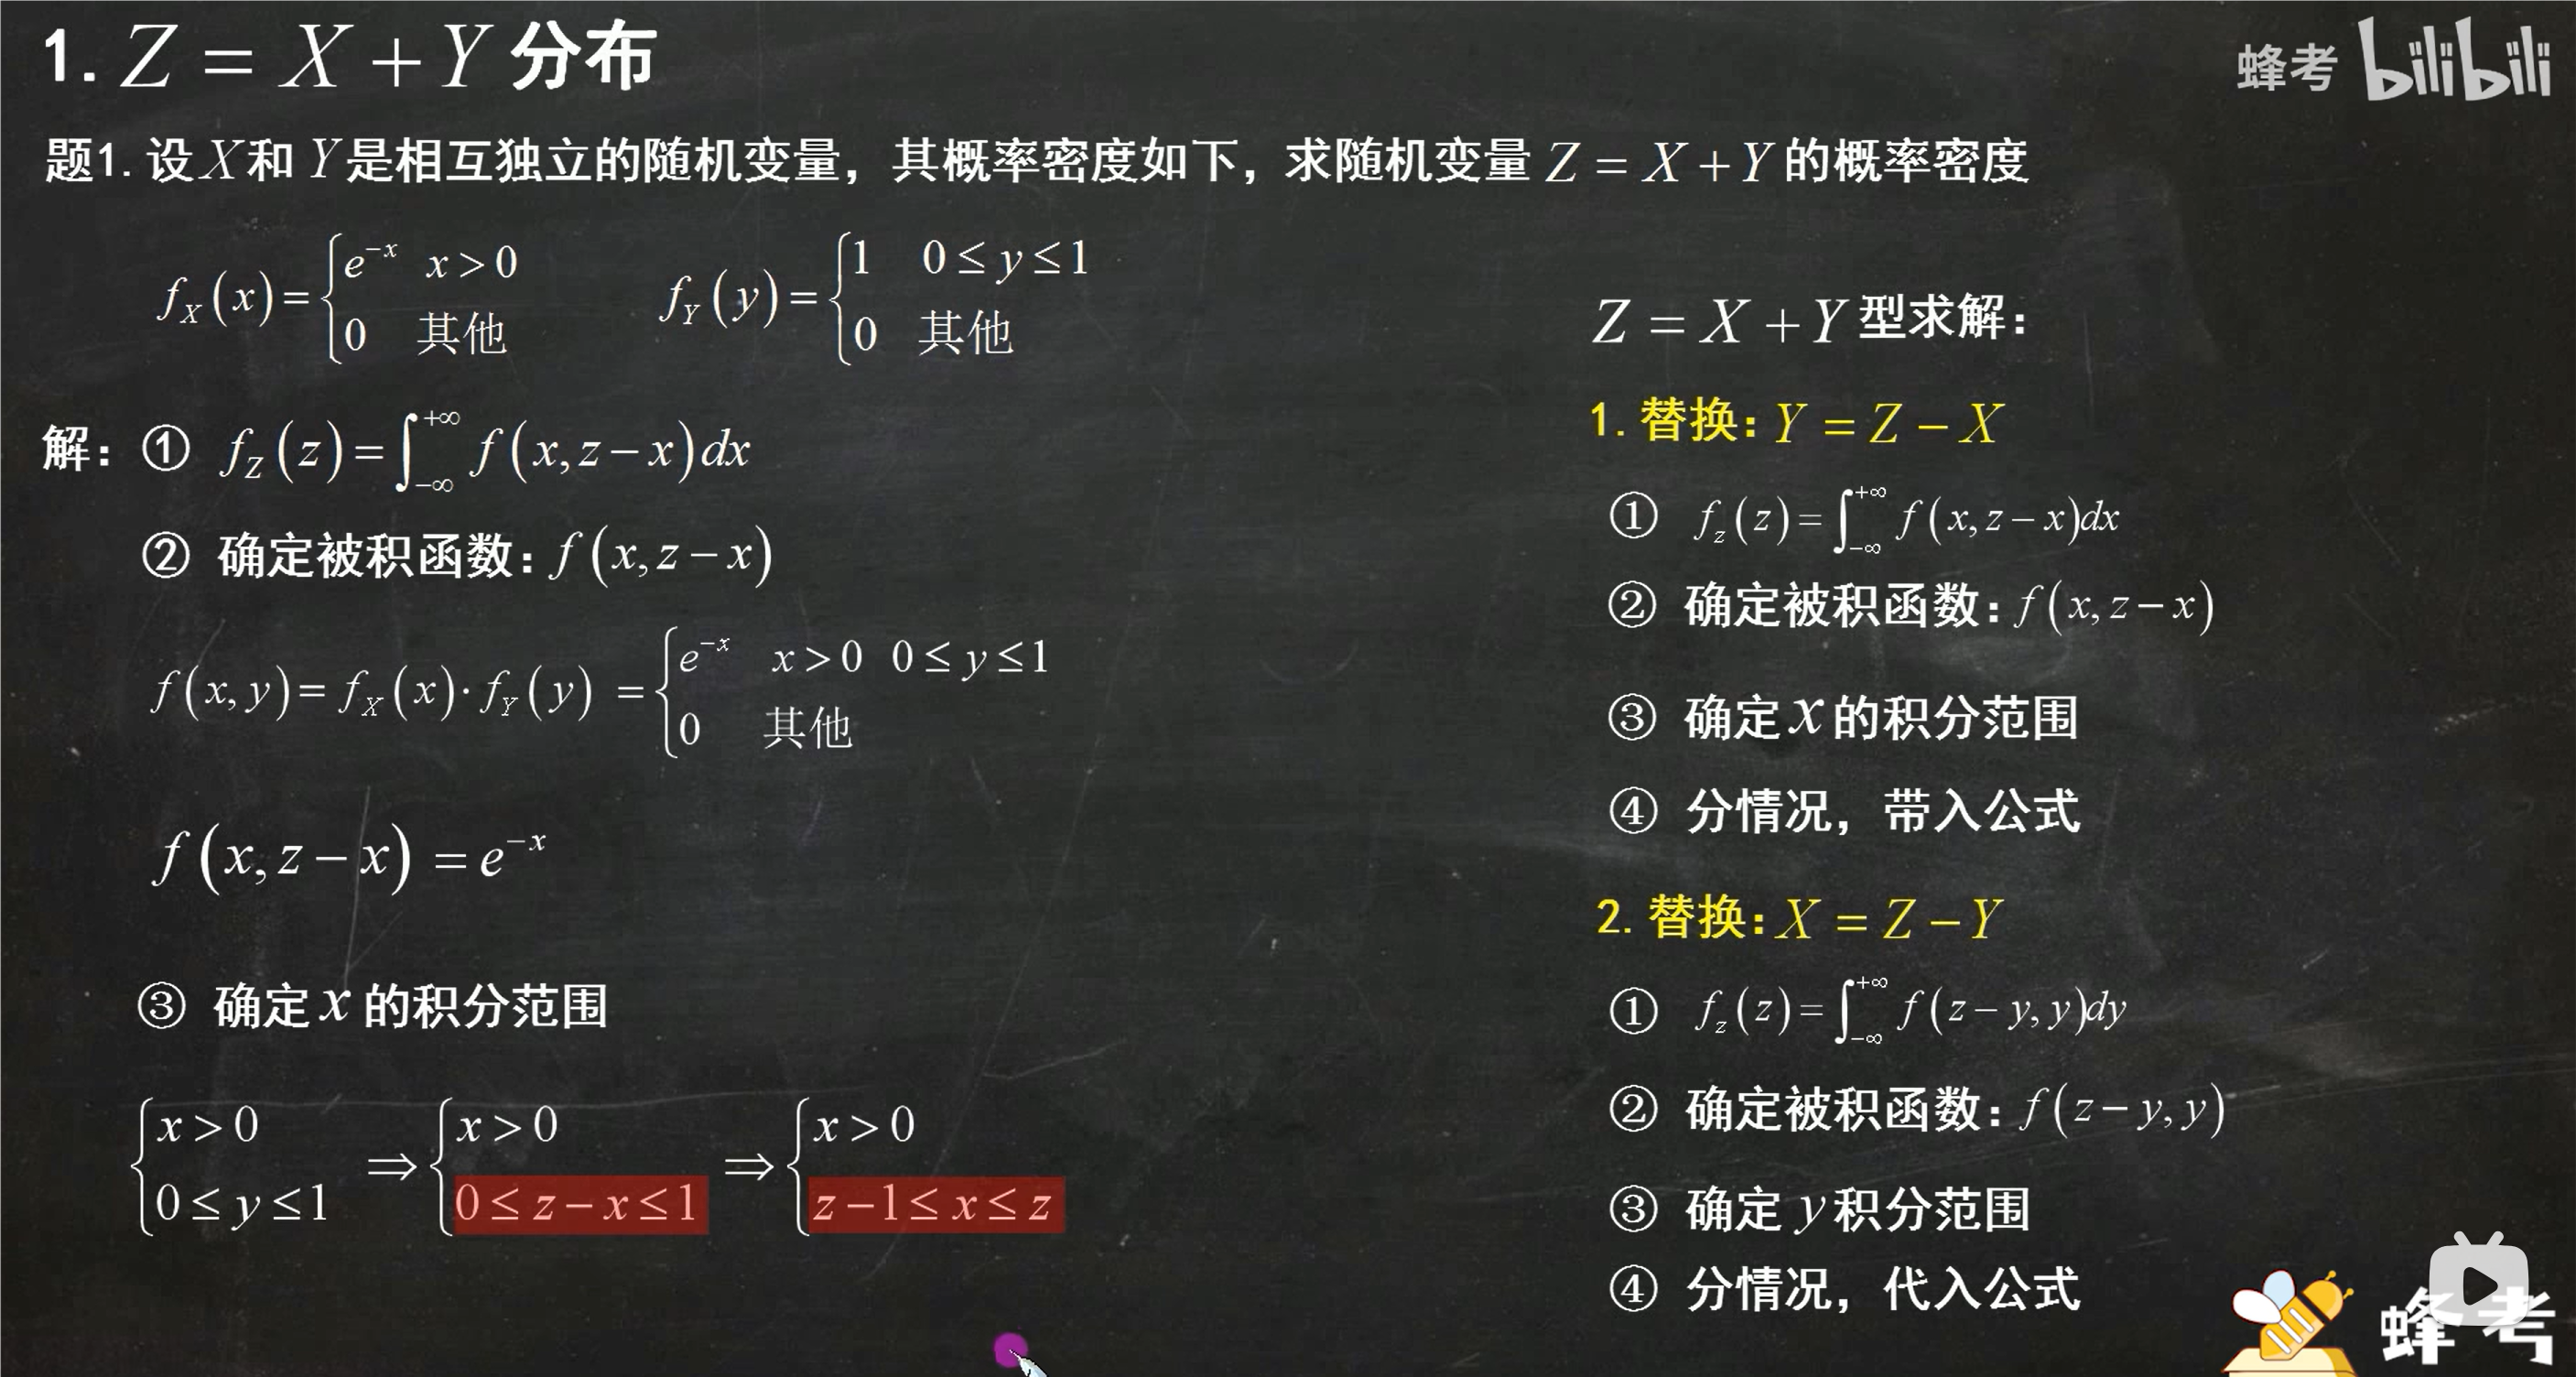 1. Z = X + Y 分布
蜂考 bilibili
题1. 设 X 和 Y 是相互独立的随机变量，其概率密度如下，求随机变量 Z = X + Y 的概率密度
f_X(x) = { e^{-x} x > 0
0 其他
f_Y(y) = { 1 0 ≤ y ≤ 1
0 其他
解：① f_Z(z) = ∫_{-∞}^{+∞} f(x, z − x)dx
② 确定被积函数：f(x, z − x)
f(x, y) = f_X(x) · f_Y(y) = { e^{-x} x > 0 0 ≤ y ≤ 1
0 其他
f(x, z − x) = e^{-x}
③ 确定 x 的积分范围
{ x > 0 ⇒ { x > 0 ⇒ { x > 0
0 ≤ y ≤ 1 0 ≤ z − x ≤ 1 z − 1 ≤ x ≤ z
Z = X + Y 型求解：
1. 替换：Y = Z − X
① f_z(z) = ∫_{-∞}^{+∞} f(x, z − x)dx
② 确定被积函数：f(x, z − x)
③ 确定 x 的积分范围
④ 分情况，带入公式
2. 替换：X = Z − Y
① f_z(z) = ∫_{-∞}^{+∞} f(z − y, y)dy
② 确定被积函数：f(z − y, y)
③ 确定 y 积分范围
④ 分情况，代入公式
蜂考